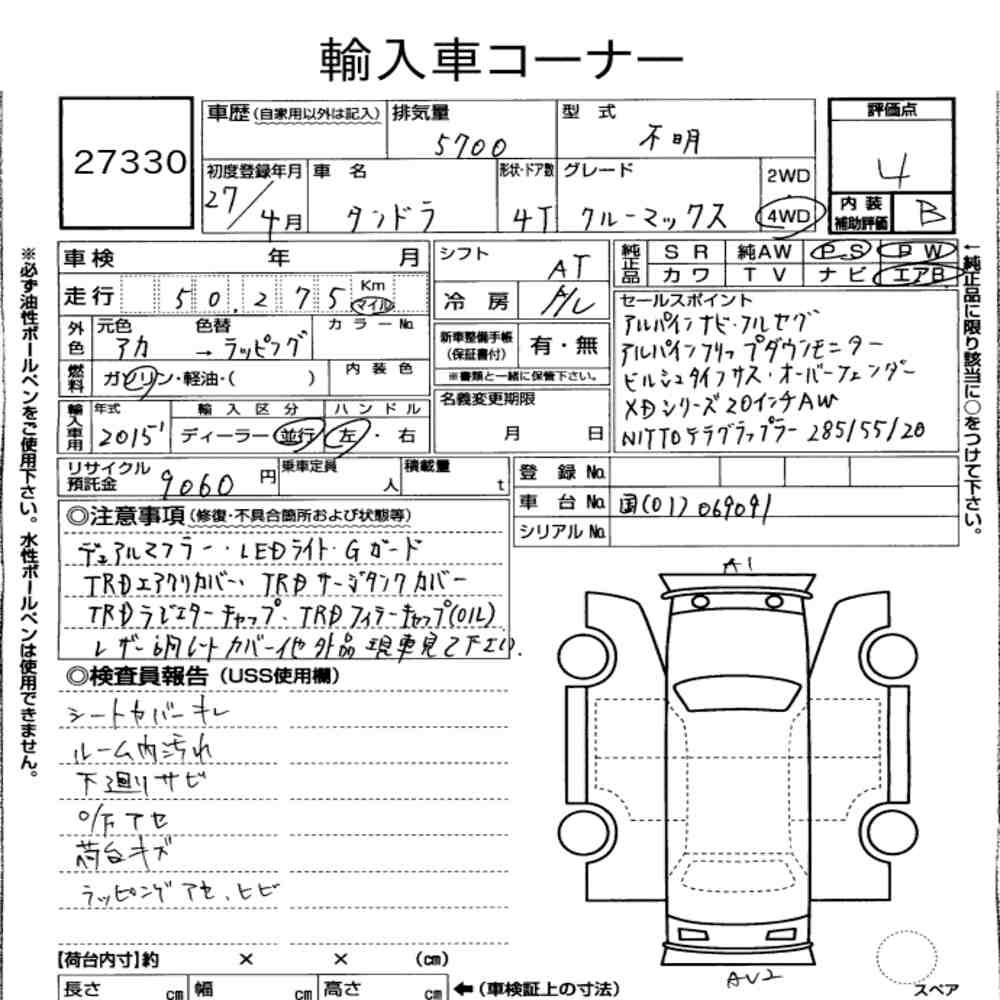 輸入車コーナー
27330
車歴(自家用以外は記入)
排気量
5700
型 式
不明
評価点
4
初度登録年月
27/4月
車 名
タンドラ
形状・ドア数
4T
グレード
クルーマックス
2WD
4WD
内装
補助評価
B
車検 年 月
走行 50,275 Km
マイル
外色
元色
アカ
色替
→ラッピング
カラーNo.
燃料
ガソリン・軽油・( )
内装色
輸入車用
年式
2015'
輸入区分
ディーラー 並行
ハンドル
左・右
シフト
AT
冷房
A/C
新車整備手帳
(保証書付)
有・無
※書類と一緒に保管下さい。
名義変更期限
月 日
純正品
SR 純AW PS PW
カワ TV ナビ エアB
セールスポイント
アルパインナビ・フルセグ
アルパインフリップダウンモニター
ビルシュタイフサス・オーバーフェンダー
XDシリーズ20インチAW
NITTOテラグラップラー 285/55/20
リサイクル
預託金
9060円
乗車定員
人
積載量
t
登録No.
車台No.
国(01)069091
シリアルNo.
◎注意事項(修復・不具合箇所および状態等)
デュアルマフラー・LEDライト・Gガード
TRDエアクリカバー・TRDサージタンクカバー
TRDラジエターキャップ・TRDフィラーキャップ(OIL)
レザー調シートカバー他外品 現車見て下さい.
◎検査員報告(USS使用欄)
シートカバーキレ
ルーム内汚れ
下廻りサビ
O/Fアセ
荷台キズ
ラッピングアセ、ヒビ
A1
AU2
スペア
【荷台内寸】約 × × (cm)
長さ cm 幅 cm 高さ cm
←(車検証上の寸法)
※必ず油性ボールペンをご使用下さい。水性ボールペンは使用できません。
←純正品に限り該当に○をつけて下さい。